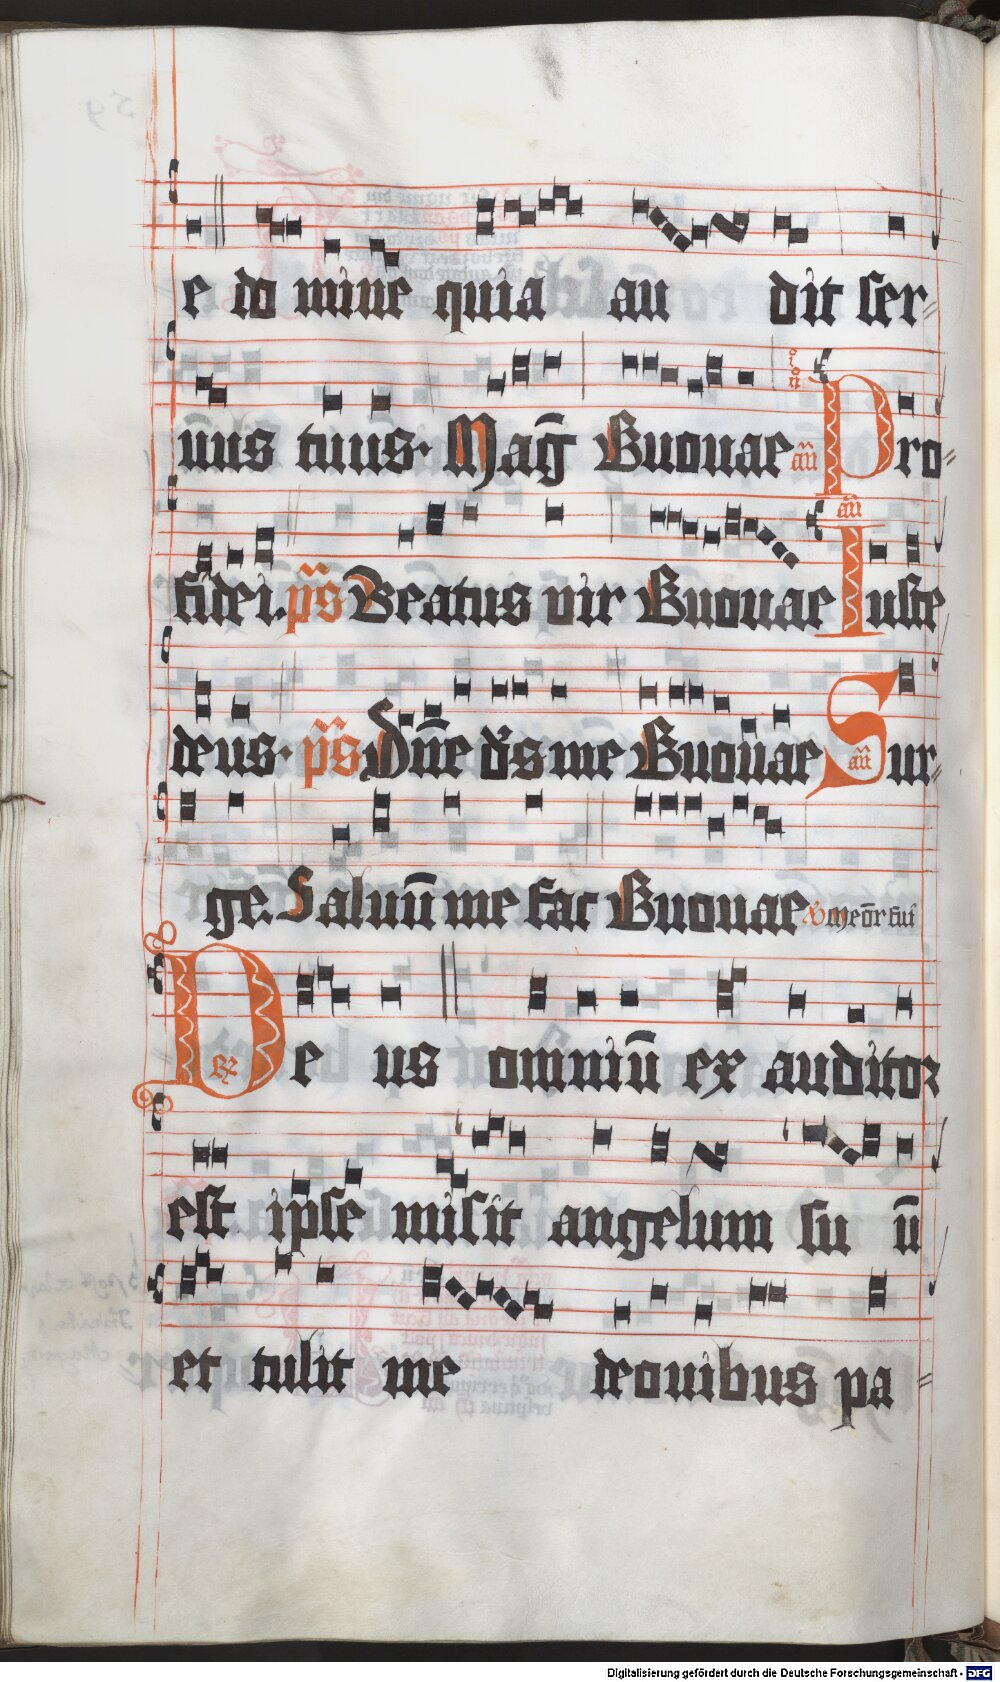 e do mine quia au dit ser
uus tuus. Maḡ Euouae an̄ Pro
fidei. ps̄ Beatus vir Euouae an̄ Iuste
deus. ps̄ Dn̄e d's me Euouae an̄ Sur
ge. Saluū me fac Euouae
De us omniū ex auditor
est ipse misit angelum su ū
et tulit me de ouibus pa
Digitalisierung gefördert durch die Deutsche Forschungsgemeinschaft - DFG